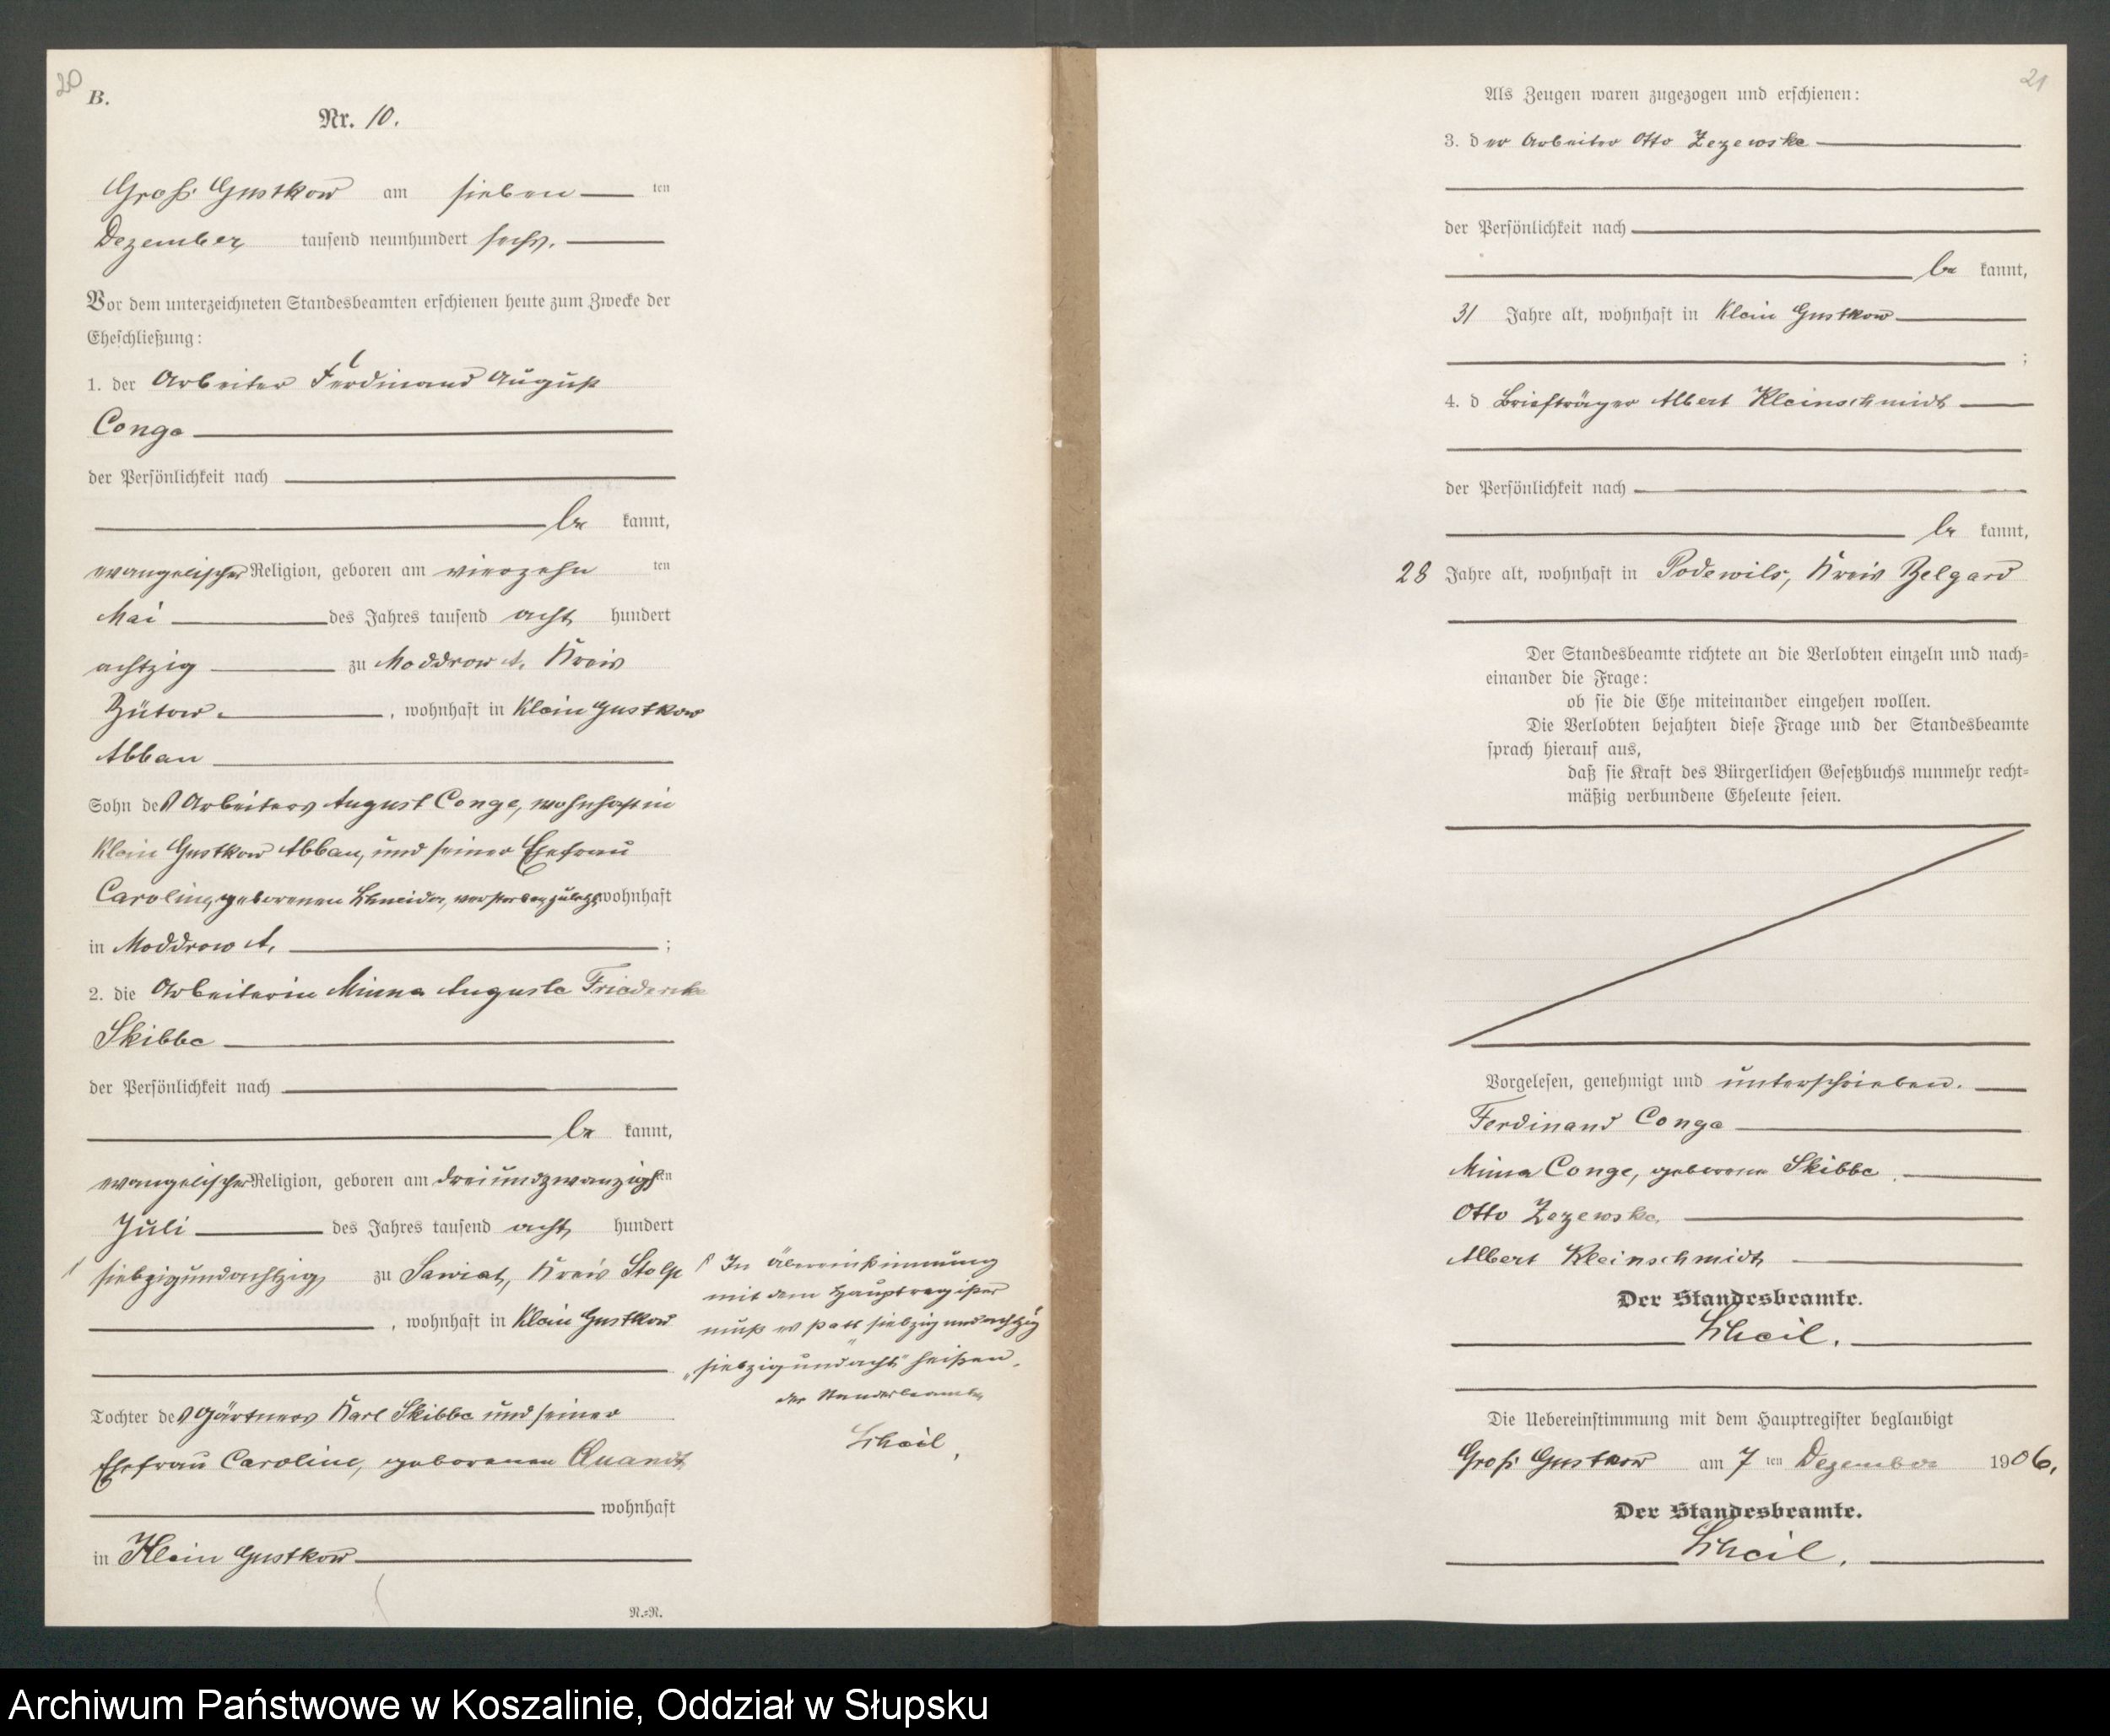 20
B.
Nr. 10.
Groß Gustkow am sieben ten
Dezember tausend neunhundert sechs.
Vor dem unterzeichneten Standesbeamten erschienen heute zum Zwecke der
Eheschließung:
1. der Arbeiter Ferdinand August
Conge
der Persönlichkeit nach
be kannt,
evangelischer Religion, geboren am vierzehn ten
Mai des Jahres tausend acht hundert
achtzig zu Moddrow A. Kreis
Bütow. , wohnhaft in Klein Gustkow
Abbau
Sohn des Arbeiters August Conge, wohnhaft in
Klein Gustkow Abbau, und seiner Ehefrau
Caroline, geborenen Schneider, verstorben, zuletzt wohnhaft
in Moddrow A. ;
2. die Arbeiterin Minna Auguste Friedericke
Skibbe
der Persönlichkeit nach
be kannt,
evangelischer Religion, geboren am dreiundzwanzigsten
Juli des Jahres tausend acht hundert
siebzigundachtzig zu Sawiat, Kreis Stolp
, wohnhaft in Klein Gustkow
Tochter des Gärtners Karl Skibbe und seiner
Ehefrau Caroline, geborenen Quandt,
wohnhaft
in Klein Gustkow
R.=R.
In Übereinstimmung
mit dem Hauptregister
muß es statt siebzigundachtzig
„siebzigundacht“ heißen.
der Standesbeamte
Scheil.
21
Als Zeugen waren zugezogen und erschienen:
3. der Arbeiter Otto Zezewske
der Persönlichkeit nach
be kannt,
31 Jahre alt, wohnhaft in Klein Gustkow
;
4. d Briefträger Albert Kleinschmidt
der Persönlichkeit nach
be kannt,
28 Jahre alt, wohnhaft in Podewils, Kreis Belgard
Der Standesbeamte richtete an die Verlobten einzeln und nach=
einander die Frage:
ob sie die Ehe miteinander eingehen wollen.
Die Verlobten bejahten diese Frage und der Standesbeamte
sprach hierauf aus,
daß sie Kraft des Bürgerlichen Gesetzbuchs nunmehr recht=
mäßig verbundene Eheleute seien.
Vorgelesen, genehmigt und unterschrieben.
Ferdinand Conge
Minna Conge, geborene Skibbe.
Otto Zezewske.
Albert Kleinschmidt
Der Standesbeamte.
Scheil.
Die Uebereinstimmung mit dem Hauptregister beglaubigt
Groß Gustkow am 7 ten Dezember 1906.
Der Standesbeamte.
Scheil.
Archiwum Państwowe w Koszalinie, Oddział w Słupsku